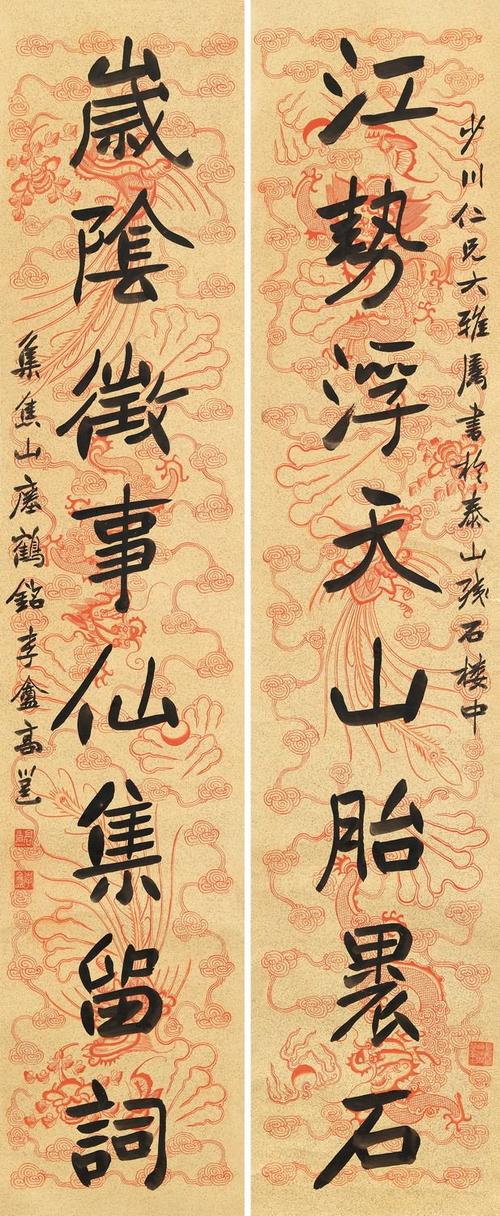 少川仁兄大雅屬書於泰山殘石樓中
江勢浮天山胎褁石
嵗陰徵事仙集留詞
集焦山瘞鶴銘李盦高邕